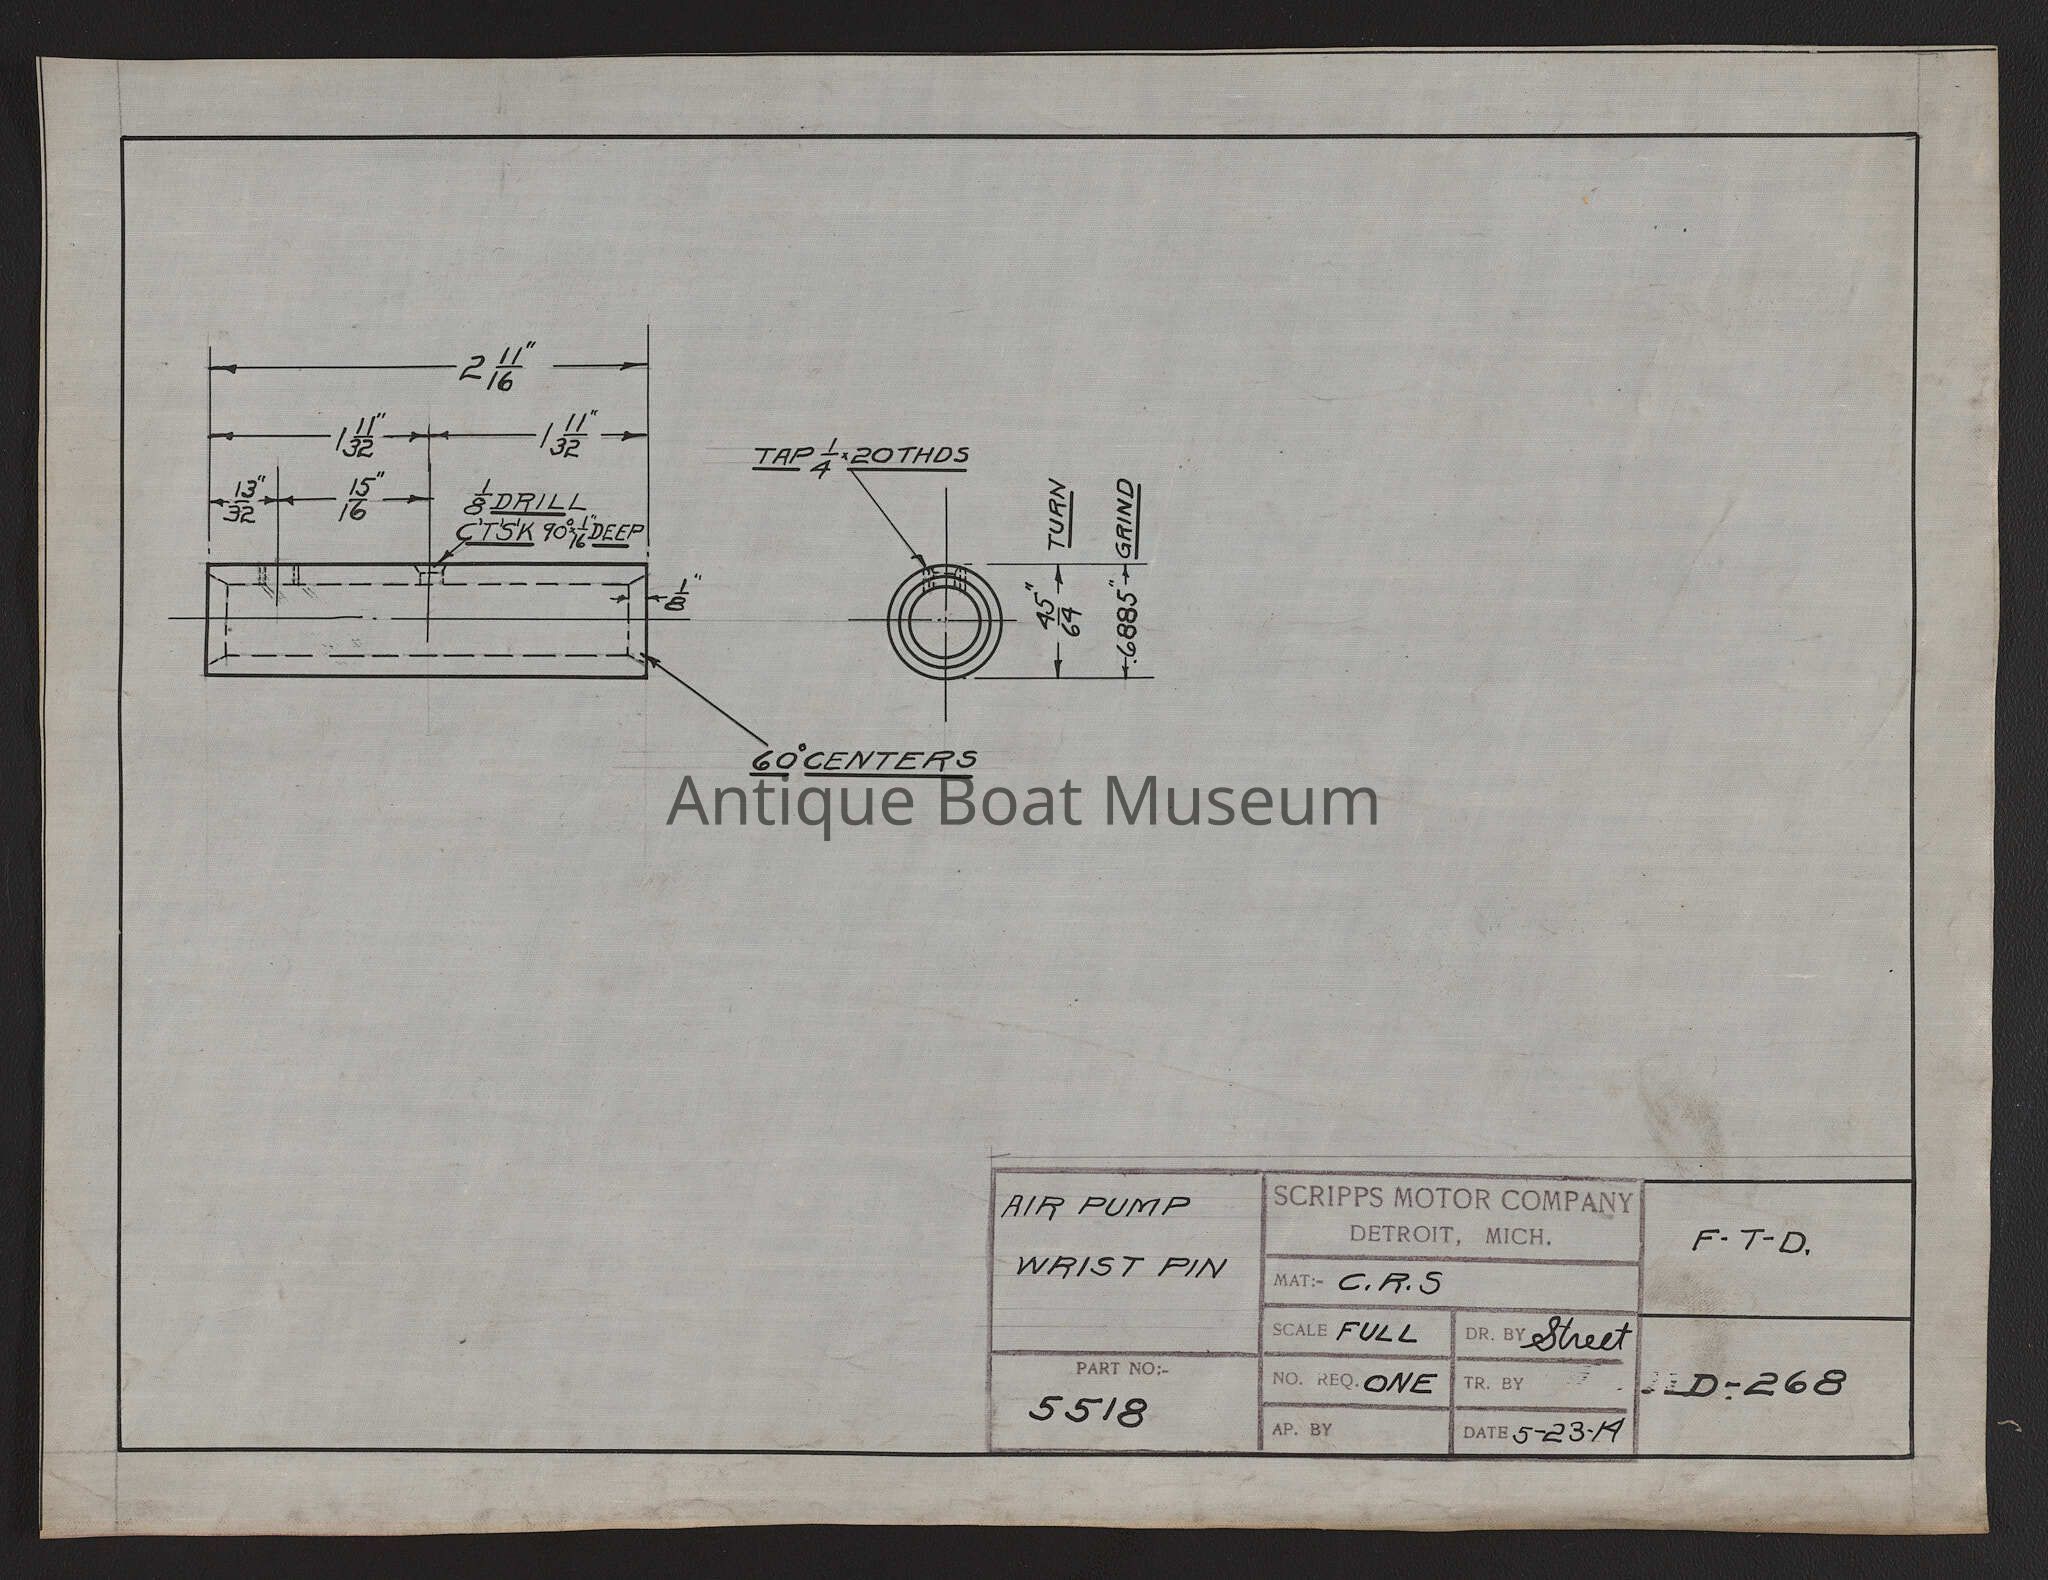 2 11/16"
1 11/32" 1 11/32"
13/32" 15/16"
1/8 DRILL
C'T'S'K 90° x 1/16" DEEP
1/8"
TAP 1/4 x 20 THDS
45/64" TURN
.6885" GRIND
60° CENTERS
Antique Boat Museum
AIR PUMP
WRIST PIN
PART NO:-
5518
SCRIPPS MOTOR COMPANY
DETROIT, MICH.
MAT:- C.R.S
SCALE FULL
DR. BY Street
NO. REQ. ONE
TR. BY
AP. BY
DATE 5-23-14
F-T-D.
D-268